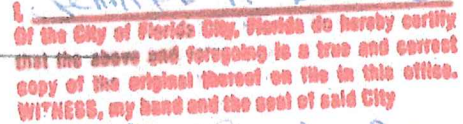 I,
Of the City of Florida City, Florida do hereby certify
that the above and foregoing is a true and correct
copy of the original thereof on file in this office.
WITNESS, my hand and the seal of said City